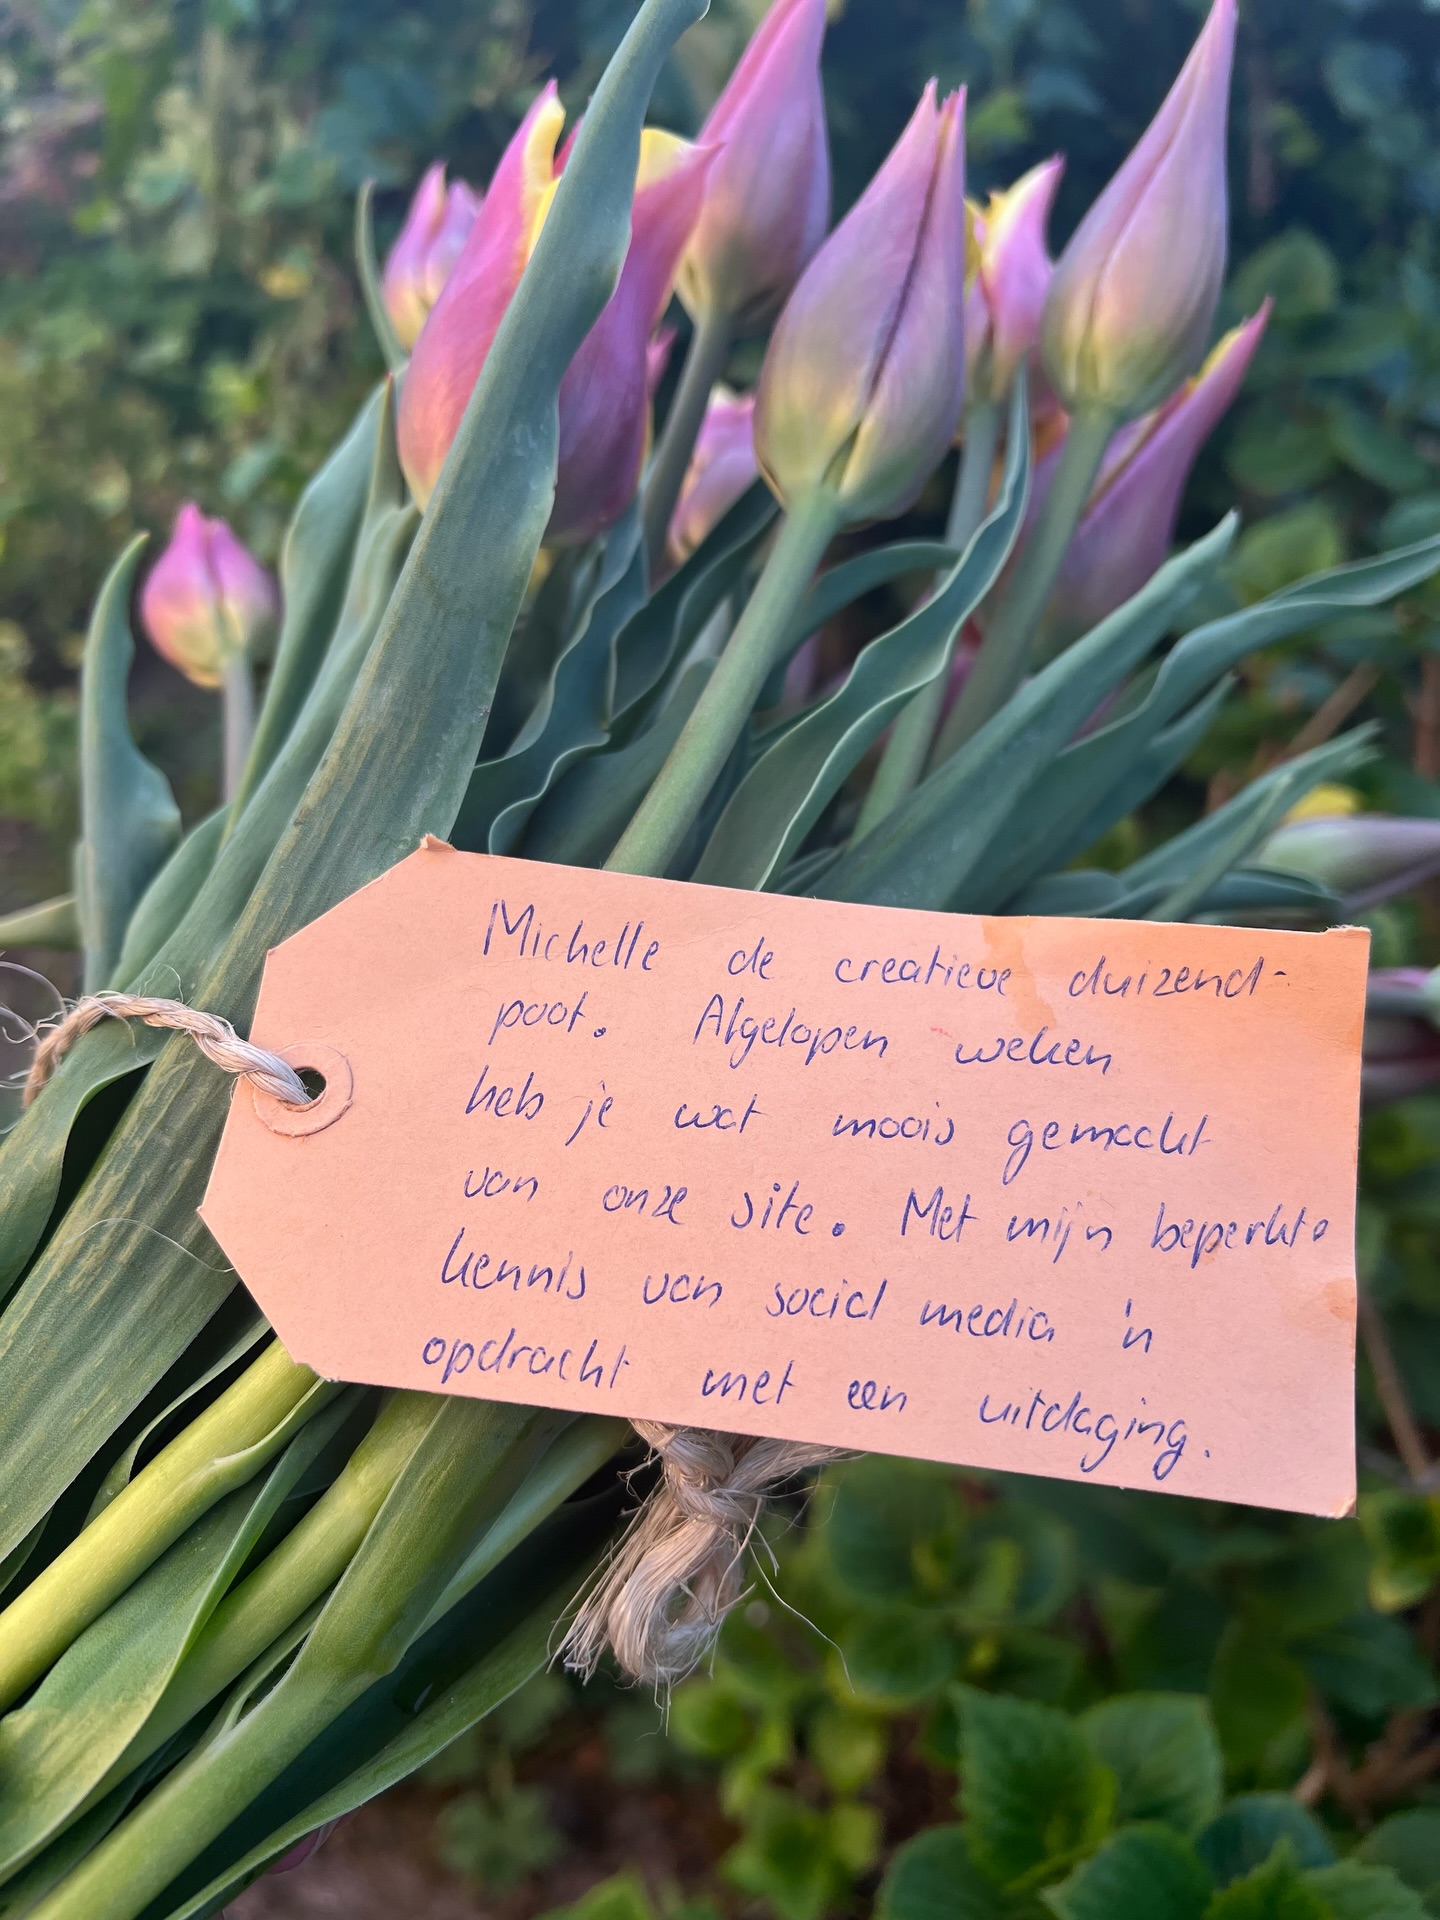 Michelle de creatieve duizend-
poot. Afgelopen weken
heb je wat moois gemaakt
van onze site. Met mijn beperkte
kennis van social media 'n
opdracht met een uitdaging.